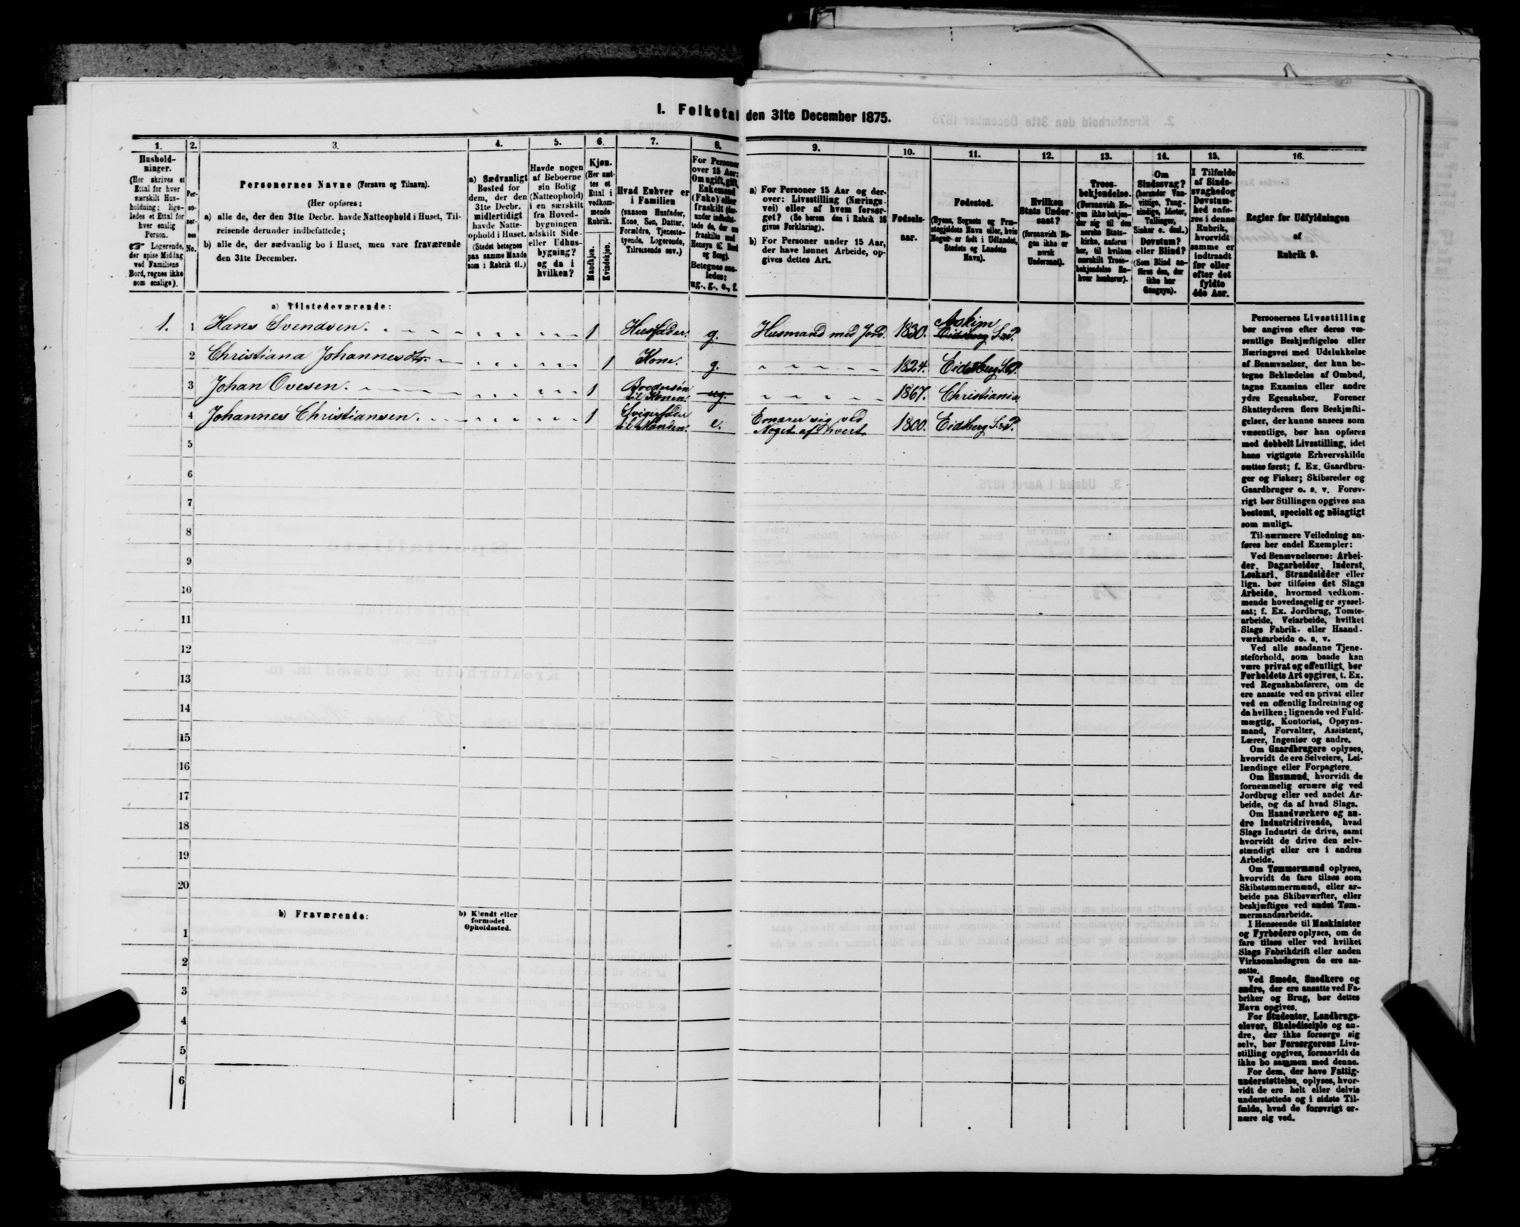 1. Folketal den 31te December 1875.
1.
Hushold-
ninger.
(Her skrives et
Ettal for hver
særskilt Hus-
holdning; lige-
ledes et Ettal for
hver enslig
Person.
☞ Logerende,
der spise Middag
ved Familiens
Bord, regnes ikke
som enslige).
2.
Per-
so-
ner-
nes
No.
3.
Personernes Navne (Fornavn og Tilnavn).
(Her opføres:
a) alle de, der den 31te Decbr. havde Natteophold i Huset, Til-
reisende derunder indbefattede;
b) alle de, der sædvanlig bo i Huset, men vare fraværende
den 31te December.
4.
a) Sædvanligt
Bosted for
dem, der den
31te Decbr.
midlertidigt
havde Natte-
ophold i Huset.
(Stedet betegnes
paa samme Maade
som i Rubrik 11.)
5.
Havde nogen
af Beboerne
sin Bolig
(Natteophold)
i en særskilt
fra Hoved-
bygningen
adskilt Side-
eller Udhus-
bygning?
og da i
hvilken?
6.
Kjøn.
(Her sæt-
tes et
Ettal i
vedkom-
mende
Rubrik.
Mandkjøn.
Kvindekjøn.
7.
Hvad Enhver er
i Familien
(saasom Husfader,
Kone, Søn, Datter,
Forældre, Tjeneste-
tyende, Logerende,
Tilreisende osv.)
8.
For Personer
over 15 Aar:
Om ugift, gift,
Enkemand
(Enke) eller
fraskilt
Betegnes saa-
ledes:
ug., g., e., f.
9.
a) For Personer 15 Aar og der-
over: Livsstilling (Nærings-
vei) eller af hvem forsør-
get? (Se herom den i Rubrik 16
givne Forklaring).
b) For Personer under 15 Aar,
der have lønnet Arbeide, op-
gives dettes Art.
10.
Fødsels-
aar.
11.
Fødested.
(Byens, Sognets og Præ-
stegjeldets Navn eller, hvis
Nogen er født i Udlandet,
Stedets og Landets
Navn).
12.
Hvilken
Stats Under-
saat?
(forsaavidt No-
gen ikke er
norsk
Undersaat).
13.
Troes-
bekjendelse.
(Forsaavidt No-
gen ikke bekjen-
der sig til den
norske Stats-
kirke, anføres
her, til hvilken
særskilt Troes-
bekjendelse En-
hver henhører).
14.
Om
Sindssvag?
(herunder Van-
vittige, Tung-
sindige, Idioter,
Tullinger,
Sinker o. desl.)
Døvstum?
eller Blind?
(Som Blind an-
føres den, der
ikke har
Gangsyn).
15.
I Tilfælde
af Sinds-
svaghed og
Døvstum-
hed anfø-
res i denne
Rubrik,
hvorvidt
samme er
indtraadt
før eller
efter det
fyldte
4de Aar.
16.
Regler for Udfyldningen
af
Rubrik 9.
a) Tilstedeværende:
1. 1 Hans Svendsen. 1 Husfader. g. Husmand med Jord. 1830. Askim Eidsberg S. & P.
2 Christiana Johannesdtr. 1 Kone. g. 1824. Eidsberg S. & P.
3 Johan Ovesen. 1 Brodersøn til Konen. ug. 1867. Christiania
4 Johannes Christiansen. 1 Svigerfader til Manden. e. Ernærer sig ved Noget af hvert 1800. Eidsberg S. & P.
5
6
7
8
9
10
11
12
13
14
15
16
17
18
19
20
b) Fraværende:
b) Kjendt eller
formodet
Opholdssted.
1
2
3
4
5
6
Personernes Livsstilling
bør angives efter deres væ-
sentlige Beskjæftigelse eller
Næringsvei med Udelukkelse
af Benævnelser, der kun be-
tegne Beklædelse af Ombud,
tagne Examina eller andre
ydre Egenskaber. Forener
Skatteyderen flere Beskjæfti-
gelser, der kunne ansees som
væsentlige, bør han opføres
med dobbelt Livsstilling, idet
hans vigtigste Erhvervskilde
sættes først; f. Ex. Gaardbru-
ger og Fisker; Skibsreder og
Gaardbruger o. s. v. Forøv-
rigt bør Stillingen opgives saa
bestemt, specielt og nøiagtigt
som muligt.
Til nærmere Veiledning an-
føres her endel Exempler:
Ved Benævnelserne: Arbei-
der, Dagarbeider, Inderst,
Løskarl, Strandsidder eller
lign. bør tilføies det Slags
Arbeide, hvormed vedkom-
mende hovedsagelig er syssel-
sat; f. Ex. Jordbrug, Tomte-
arbeide, Veiarbeide, hvilket
Slags Fabrik- eller Haand-
værksarbeide o. s. v.
Ved alle saadanne Tjene-
steforhold, som baade kan
være privat og offentligt, bør
Forholdets Art opgives, t. Ex.
ved Regnskabsførere, om de
ere ansatte ved en privat eller
ved en offentlig Indretning og
da hvilken; lignende ved Fuld-
mægtig, Kontorist, Opsyns-
mand, Forvalter, Assistent,
Lærer, Ingeniør og andre.
Om Gaardbrugere oplyses,
hvorvidt de ere Selveiere, Lei-
lændinge eller Forpagtere.
Om Husmænd, hvorvidt de
fornemmelig ernære sig ved
Jordbrug eller ved andet Ar-
beide, og da af hvad Slags.
Om Haandværkere og an-
dre Industridrivende, hvad
Slags Industri de drive, samt
hvorvidt de drive den selv-
stændigt eller ere i andres
Arbeide.
Om Tømmermænd oplyses,
hvorvidt de fare tilsøs som
Skibstømmermænd, eller ar-
beide paa Skibsværfter, eller
beskjæftiges ved andet Tøm-
mermandsarbeide.
I Henseende til Maskinister
og Fyrbødere oplyses, om de
fare tilsøs eller ved hvilket
Slags Fabrikdrift eller anden
Virksomhedsgren de ere an-
satte.
Ved Smede, Snedkere og
andre, der ere ansatte ved Fa-
briker og Brug, bør dettes
Navn opgives.
For Studenter, Landbrugs-
elever, Skoledisciple og an-
dre, der ikke forsørge sig
selv, bør Forsørgerens Livs-
stilling opgives, forsaavidt de
ikke bo sammen med denne.
For dem, der have Fattig-
understøttelse, oplyses, hvor-
vidt de ere helt eller delvis
understøttede og i sidste Til-
fælde, hvad de forøvrigt er-
nære sig ved.